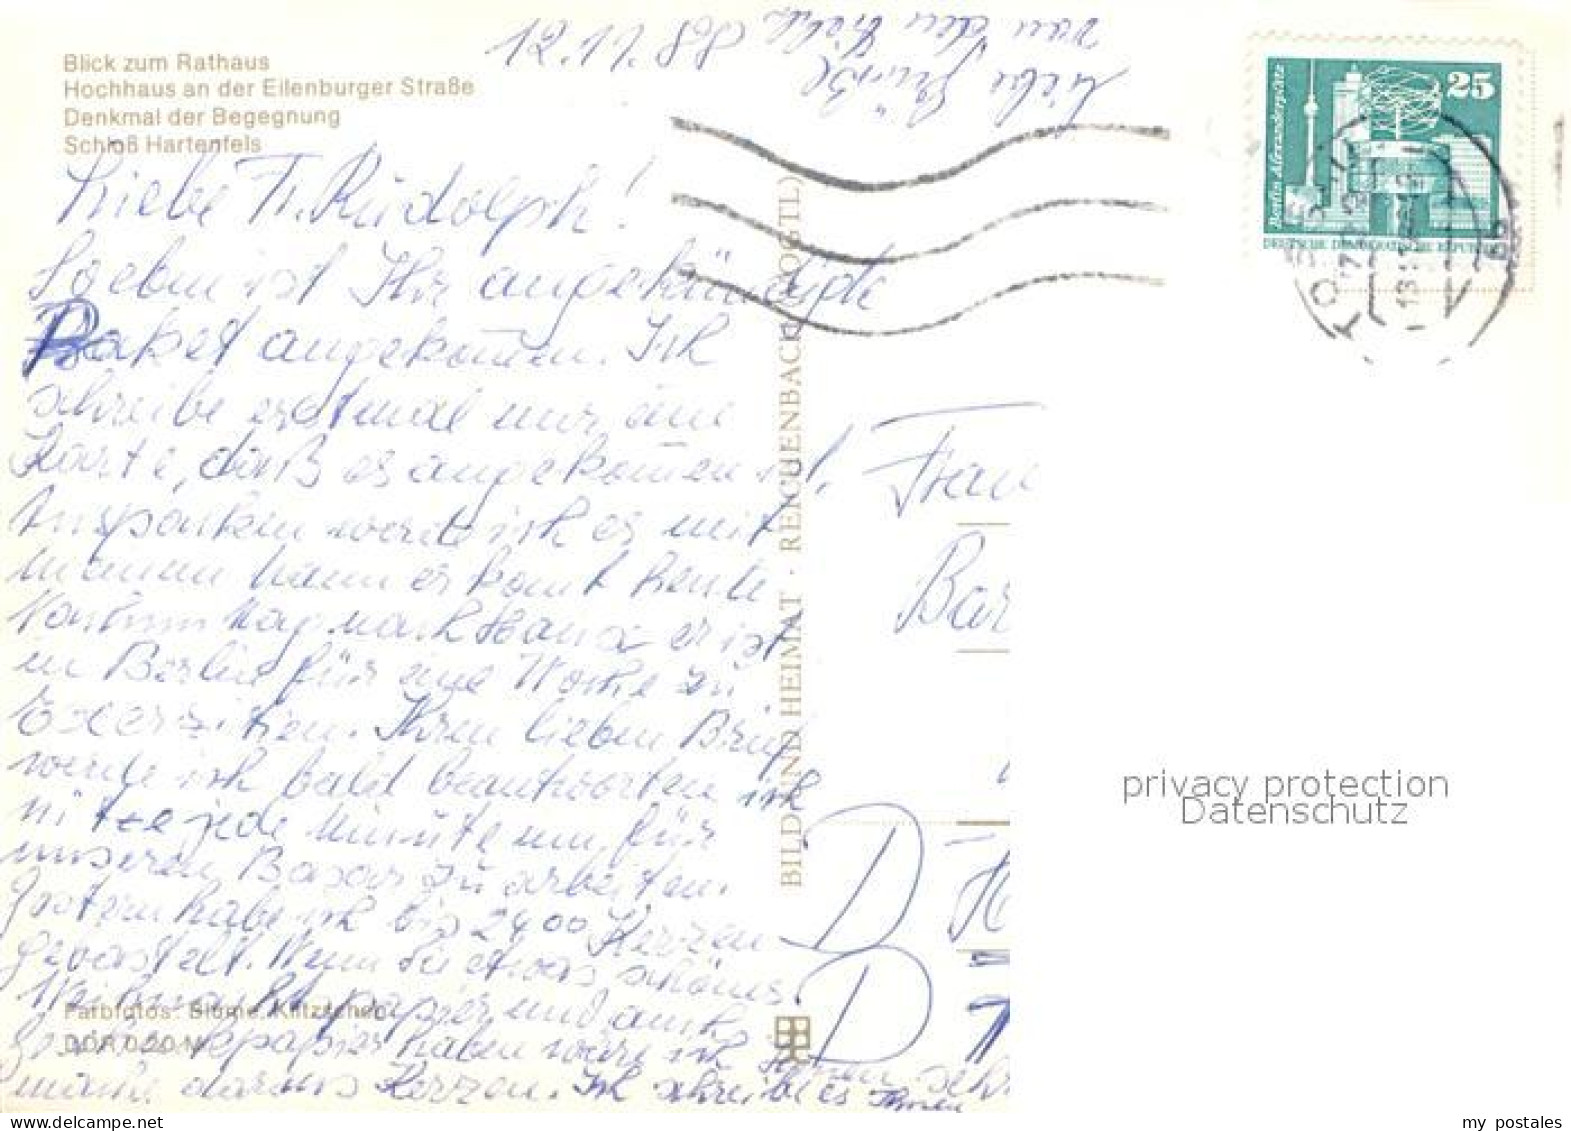 Blick zum Rathaus
Hochhaus an der Eilenburger Straße
Denkmal der Begegnung
Schloß Hartenfels
12.11.88
Liebe Grüße
von den
25
Berlin-Alexanderplatz
DEUTSCHE DEMOKRATISCHE REPUBLIK
Liebe Fr. Rudolph!
Soeben ist Ihr angekündigte
Paket angekommen. Ich
schreibe erstmal nur eine
Karte, daß es angekommen ist,
Auspacken werde ich es mit
meinem Mann er komt heute
Nachmittag nach Hause er ist
in Berlin für eine Woche zu
Exerzitien. Ihren lieben Brief
werde ich bald beantworten ich
nitze jede Minute um für
unseren Basar zu arbeiten.
Gestern habe ich bis 24 00 Kerzen
Wenn Sie etwas schönes
Weihnachtspapier und auch
Geschenkepapier haben wäre ich Ihnen sehr
mache daraus Kerzen. Ich schreibe es Ihnen
Farbfotos: Blume, Klitzschen
DDR 0,20 M
BILD UND HEIMAT · REICHENBACH (VOGTL)
Frau
Bar
D
D
privacy protection
Datenschutz
my_postales